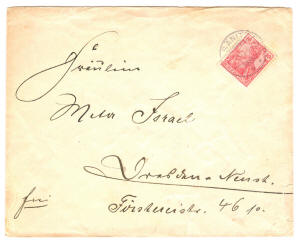 Fräulein
Meta Israel
Dresden-Neust.
frei
Förstereistr. 46 p.